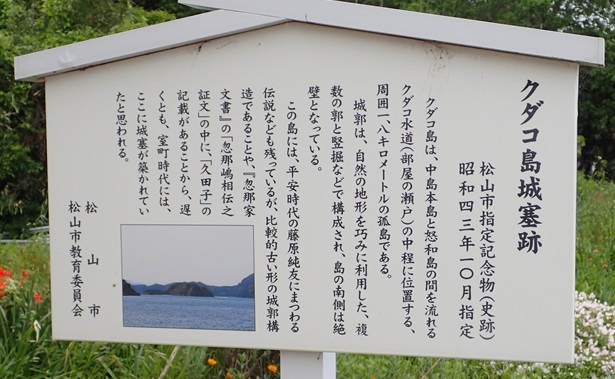 クダコ島城塞跡
松山市指定記念物(史跡)
昭和四三年一〇月指定
クダコ島は、中島本島と怒和島の間を流れる
クダコ水道(部屋の瀬戸)の中程に位置する、
周囲一、八キロメートルの孤島である。
城郭は、自然の地形を巧みに利用した、複
数の郭と竪掘などで構成され、島の南側は絶
壁となっている。
この島には、平安時代の藤原純友にまつわる
伝説なども残っているが、比較的古い形の城郭構
造であることや、『忽那家
文書』の「忽那嶋相伝之
証文」の中に、「久田子」の
記載があることから、遅
くとも、室町時代には、
ここに城塞が築かれてい
たと思われる。
松山市
松山市教育委員会